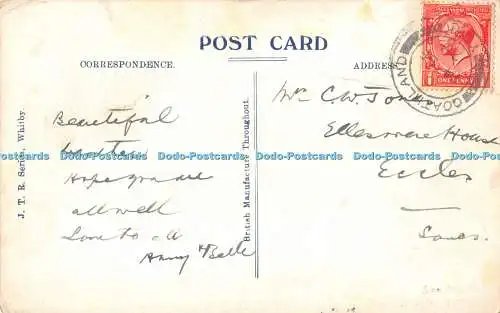 POST CARD
CORRESPONDENCE.
ADDRESS.
GOATHLAND
ONE PENNY
Beautiful
Hope you are
all well
Love to all
Annie & Belle
Mr C.W. Jones
Ellesmere House
Eccles
Lancs.
J. T. R. Series, Whitby.
British Manufacture Throughout.
Dodo-Postcards Dodo-Postcards Dodo-Postcards Dodo-Postcards Dodo-Postcards